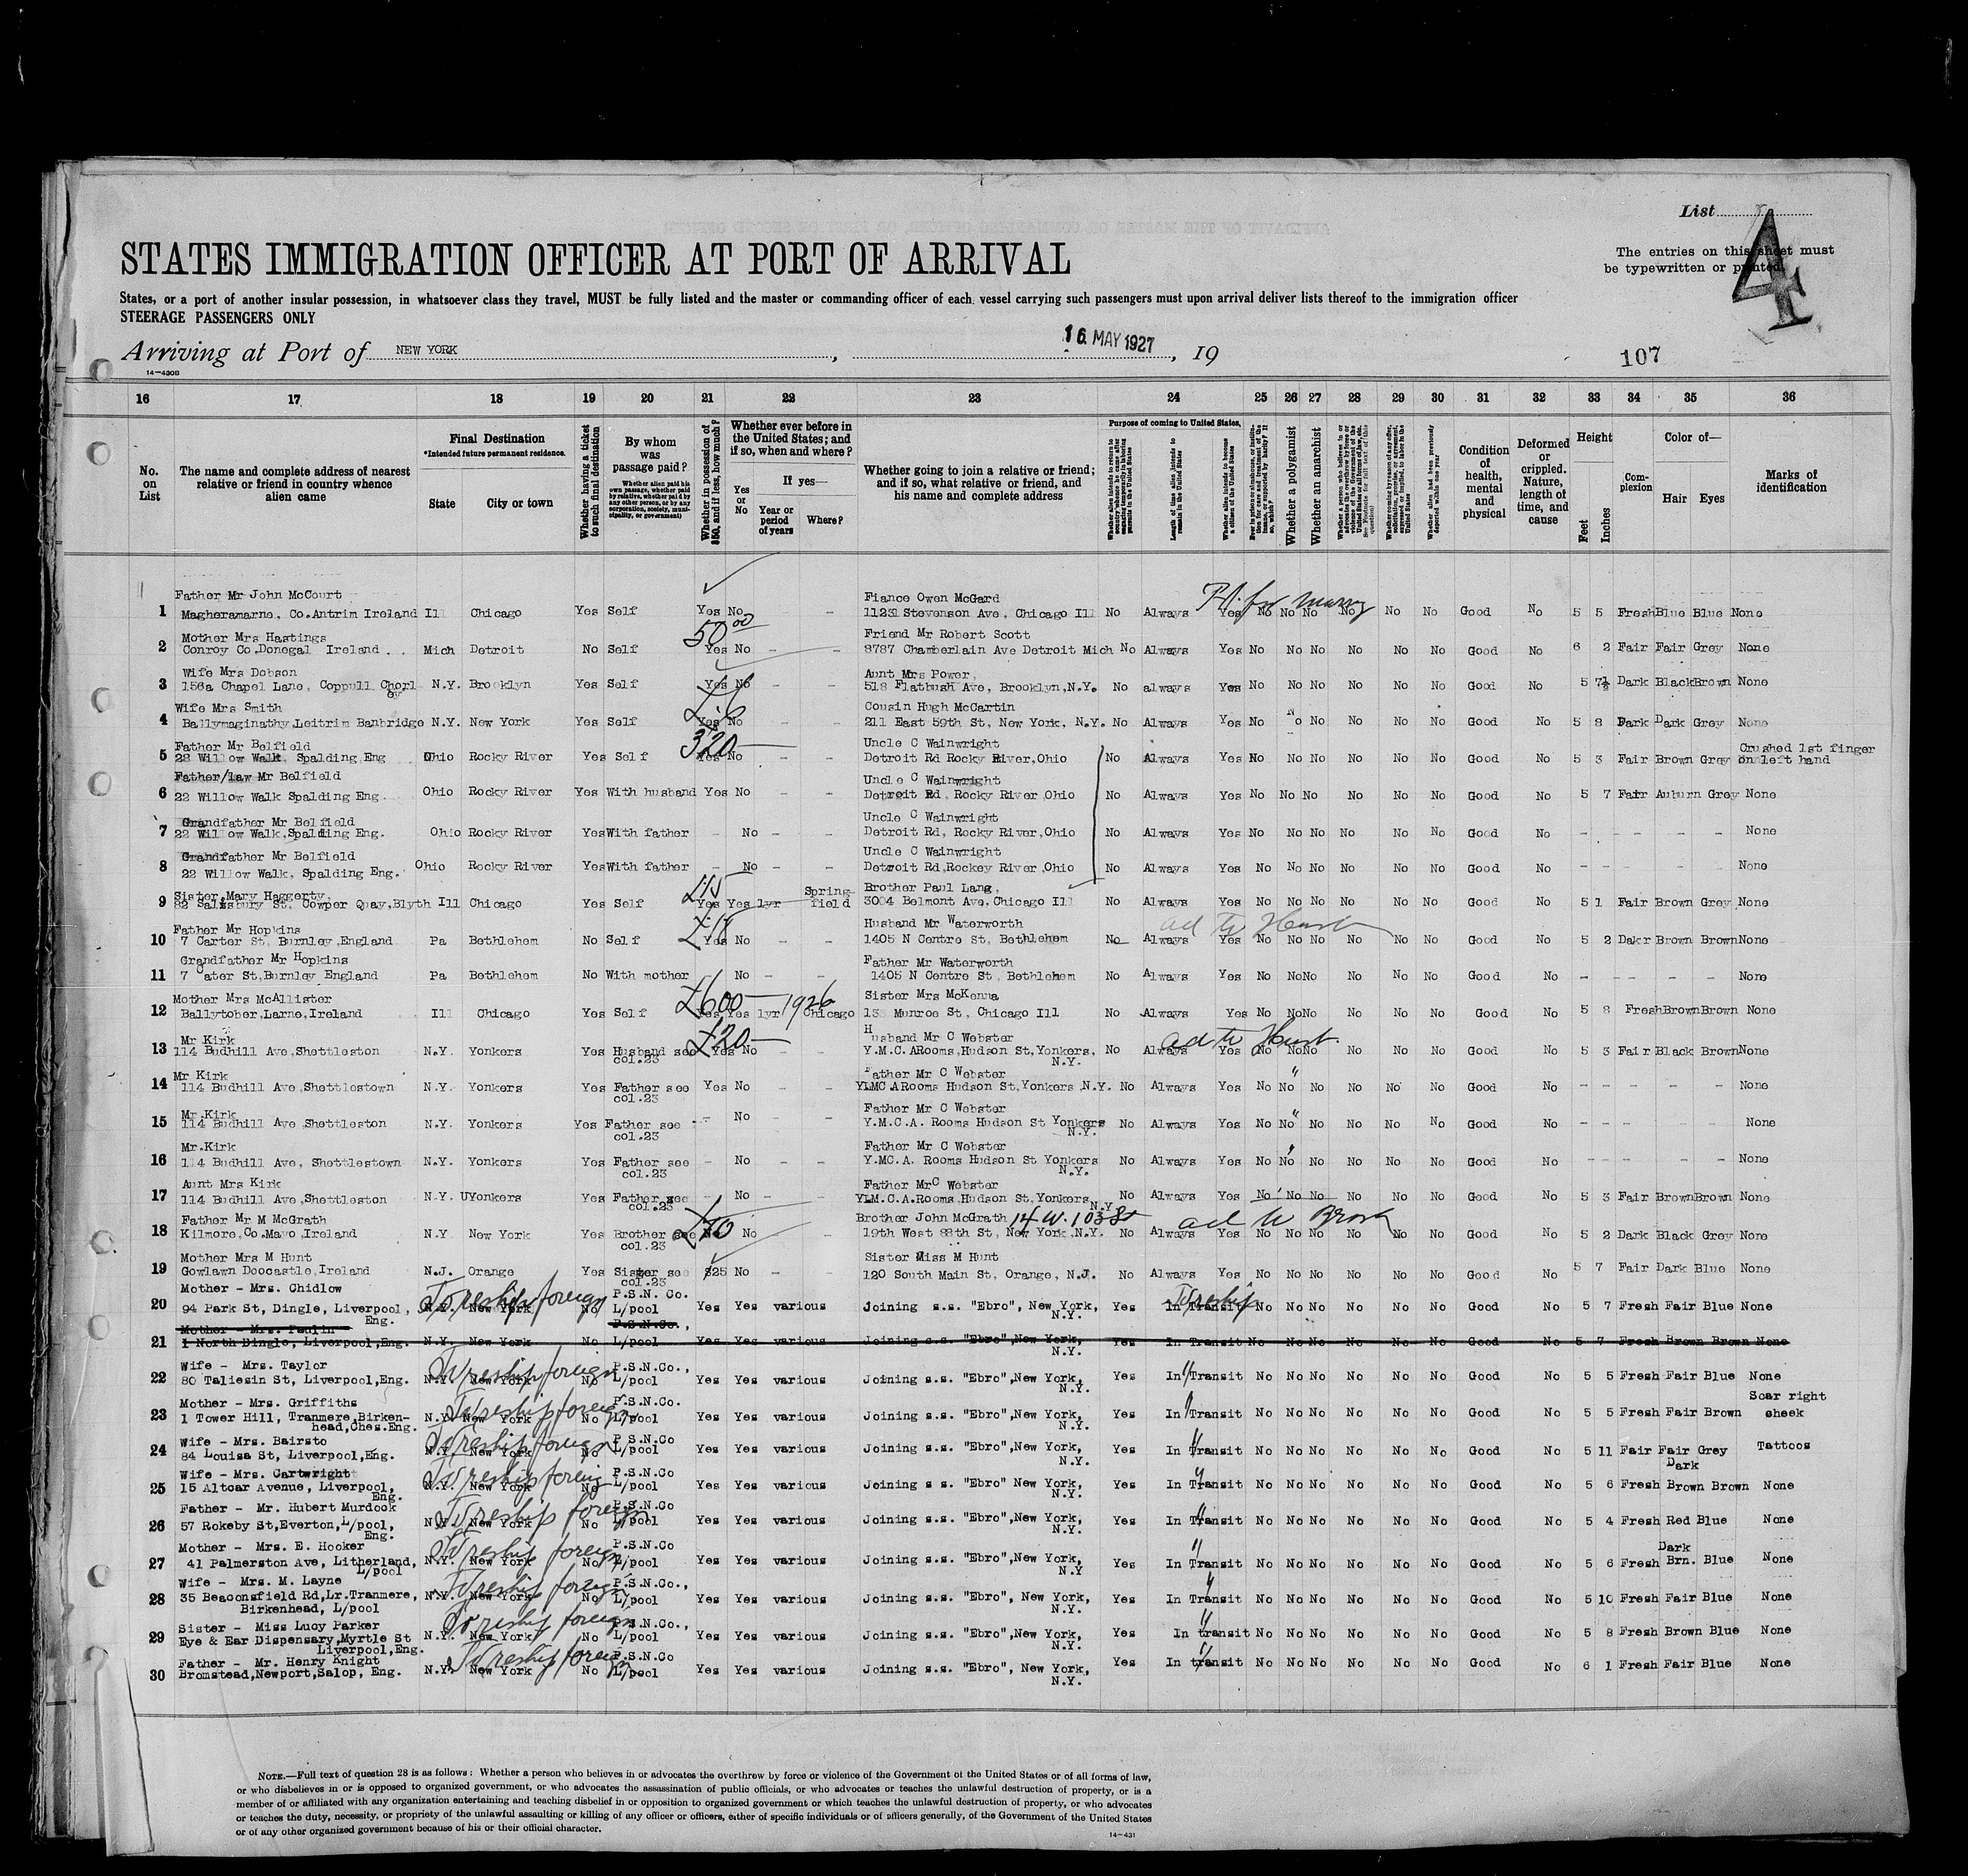 List
4
The entries on this sheet must
be typewritten or printed.
STATES IMMIGRATION OFFICER AT PORT OF ARRIVAL
States, or a port of another insular possession, in whatsoever class they travel, MUST be fully listed and the master or commanding officer of each vessel carrying such passengers must upon arrival deliver lists thereof to the immigration officer
STEERAGE PASSENGERS ONLY
Arriving at Port of NEW YORK, 16 MAY 1927, 19
14-430B
107
16 17 18 19 20 21 22 23 24 25 26 27 28 29 30 31 32 33 34 35 36
No. on List
The name and complete address of nearest relative or friend in country whence alien came
Final Destination
*Intended future permanent residence.
State City or town
Whether having a ticket to such final destination
By whom was passage paid?
Whether alien paid his own passage, whether paid by relative, whether paid by any other person, or by any corporation, society, municipality, or government)
Whether in possession of $50, and if less, how much?
Whether ever before in the United States; and if so, when and where?
Yes or No
If yes—
Year or period of years
Where?
Whether going to join a relative or friend; and if so, what relative or friend, and his name and complete address
Purpose of coming to United States.
Length of time alien intends to remain in the United States
Whether alien intends to become a citizen of the United States
Whether a polygamist
Whether an anarchist
Whether alien had been previously deported within one year
Condition of health, mental and physical
Deformed or crippled. Nature, length of time, and cause
Height
Feet Inches
Complexion
Color of—
Hair Eyes
Marks of identification
Father Mr John McCourt Fiance Owen McGard
1 Magheramarne, Co.Antrim Ireland Ill Chicago Yes Self Yes No - 11231 Stevenson Ave, Chicago Ill No Always Yes No No No No No No Good No 5 5 Fresh Blue Blue None
Mother Mrs Hastings 50 00 Friend Mr Robert Scott
2 Conroy Co.Donegal Ireland. Mich Detroit No Self Yes No - - 8787 Chamberlain Ave Detroit Mich No Always Yes No No No No No No Good No 6 2 Fair Fair Grey None
Wife Mrs Dobson Aunt Mrs Power,
3 156a Chapel Lane, Coppull Chorley N.Y. Brooklyn Yes Self Yes No - 518 Flatbush Ave, Brooklyn,N.Y. No always Yes No No No No No No Good No 5 7½ Dark Black Brown None
Wife Mrs Smith £6 Cousin Hugh McCartin
4 Ballymaginathy,Leitrim Banbridge N.Y. New York Yes Self Yes No - - 211 East 59th St, New York, N.Y. No Always Yes No No No No No No Good No 5 8 Dark Dark Grey None
Father Mr Belfield 320 Uncle C Wainwright Crushed 1st finger
5 22 Willow Walk, Spalding Eng Ohio Rocky River Yes Self Yes No - - Detroit Rd Rocky River,Ohio No Always Yes No No No No No No Good No 5 3 Fair Brown Grey on left hand
Father/law Mr Belfield Uncle C Wainwright
6 22 Willow Walk Spalding Eng. Ohio Rocky River Yes With husband Yes No - - Detroit Rd, Rocky River,Ohio No Always Yes No No No No No No Good No 5 7 Fair Auburn Grey None
Grandfather Mr Belfield Uncle C Wainwright
7 22 Willow Walk,Spalding Eng. Ohio Rocky River Yes With father No - - Detroit Rd, Rocky River,Ohio No Always Yes No No No No No No Good No - - - - - None
Grandfather Mr Belfield Uncle C Wainwright
8 22 Willow Walk, Spalding Eng. Ohio Rocky River Yes With father - No - - Detroit Rd,Rockey River,Ohio No Always Yes No No No No No No Good No - - - - None
Sister,Mary Haggerty, £15 Spring- Brother Paul Lang,
9 82 Salisbury St, Cowper Quay,Blyth Ill Chicago Yes Self Yes Yes 1yr field 3004 Belmont Ave,Chicago Ill No Always Yes No No No No No No Good No 5 1 Fair Brown Grey None
Father Mr Hopkins £18 Husband Mr Waterworth ad to Husb
10 7 Carter St, Burnley,England Pa Bethlehem No Self Yes No - - 1405 N Centre St, Bethlehem No Always Yes No No No No No No Good No 5 2 Dakr Brown Brown None
Grandfather Mr Hopkins Father Mr Waterworth
11 7 Cater St,Burnley England Pa Bethlehem No With mother No - - 1405 N Centre St, Bethlehem No Always Yes No No No No No No Good No - - - - - None
Mother Mrs McAllister £600 1926 Sister Mrs McKenna
12 Ballytober,Larne,Ireland Ill Chicago Yes Self Yes Yes 1yr Chicago Munroe St, Chicago Ill No Always Yes No No No No No No Good No 5 8 Fresh Brown Brown None
Mr Kirk £20 Husband Mr C Webster ad to Husb.
13 114 Budhill Ave,Shettleston N.Y. Yonkers Yes Husband see col.23 Yes No - - Y.M.C.ARooms,Hudson St,Yonkers, N.Y. No Always Yes No No No No No No Good No 5 3 Fair Black Brown None
Mr Kirk Father Mr C Webster "
14 114 Budhill Ave,Shettlestown N.Y. Yonkers Yes Father see col.23 Yes No - - YLMC.ARooms Hudson St,Yonkers,N.Y. No Always Yes No No No No No No Good No - - - - - None
Mr.Kirk Father Mr C Webster "
15 114 Budhill Ave Shettleston N.Y. Yonkers Yes Father see col.23 - No - - Y.M.C.A. Rooms Hudson St Yonkers N.Y. No Always Yes No No No No No No Good No - - - - - None
Mr.Kirk Father Mr C Webster
16 114 Budhill Ave, Shettlestown N.Y. Yonkers Yes Father see col.23 - No - - Y.MC.A. Rooms Hudson St Yonkers N.Y. No Always Yes No No No No No No Good No - - - - - None
Aunt Mrs Kirk Father MrC Webster
17 114 Budhill Ave,Shettleston N.Y. UYonkers Yes Father see col.23 - No - YLM.C.A.Rooms,Hudson St,Yonkers, N.Y No Always Yes No No No No No No Good No 5 3 Fair Brown Brown None
Father Mr M McGrath £10 Brother John McGrath 14 W. 103 St ad to Broth
18 Kilmore,Co.Mayo,Ireland N.Y New York Yes Brother see col.23 No - 19th West 88th St, New York,N.Y. No Always Yes No No No No No No Good No 5 2 Dark Black Grey None
Mother Mrs M Hunt Sister Miss M Hunt
19 Gowlawn Doocastle,Ireland N.J. Orange Yes Sister see col.23 $25 No - 120 South Main St, Orange, N.J. No Always Yes No No No No No No Good No 5 7 Fair Dark Blue None
Mother - Mrs. Chidlow To reship foreign P.S.N. Co. To reship
20 94 Park St, Dingle, Liverpool, Eng. N.Y. New York No L/pool Yes Yes various Joining s.s. "Ebro", New York, N.Y. Yes In Transit No No No No No No Good No 5 7 Fresh Fair Blue None
Mother - Mrs. Paulin P.S.N.Co.,
21 1 North Dingle, Liverpool,Eng. N.Y. New York No L/pool Yes Yes various Joining s.s. "Ebro",New York, N.Y. Yes In Transit No No No No No No Good No 5 7 Fresh Brown Brown None
Wife - Mrs. Taylor To reship foreign P.S.N.Co.,
22 80 Taliesin St, Liverpool,Eng. N.Y. New York No L/pool Yes Yes various Joining s.s. "Ebro",New York, N.Y. Yes In Transit No No No No No No Good No 5 5 Fresh Fair Blue None
Mother - Mrs. Griffiths To reship foreign P.S.N.Co. Scar right
23 1 Tower Hill, Tranmere,Birken-head,Ches.Eng. N.Y. New York No L/pool Yes Yes various Joining s.s. "Ebro",New York, N.Y. Yes In Transit No No No No No No Good No 5 5 Fresh Fair Brown cheek
Wife - Mrs. Bairsto To reship foreign P.S.N.Co
24 84 Louisa St, Liverpool,Eng. N.Y. New York No L/pool Yes Yes various Joining s.s. "Ebro",New York, N.Y. Yes In Transit No No No No No No Good No 5 11 Fair Fair Grey Tattoos
Wife - Mrs. Cartwright To reship foreign P.S.N.Co Dark
25 15 Altcar Avenue, Liverpool, Eng. N.Y. New York No L/pool Yes Yes various Joining s.s. "Ebro" New York, N.Y. Yes In Transit No No No No No No Good No 5 6 Fresh Brown Brown None
Father - Mr. Hubert Murdock To reship foreign P.S.N.Co
26 57 Rokeby St,Everton,L/pool, Eng. N.Y. New York No L/pool Yes Yes various Joining s.s. "Ebro",New York, N.Y. Yes In Transit No No No No No No Good No 5 4 Fresh Red Blue None
Mother - Mrs. E. Hooker To reship foreign P.S.N.Co Dark
27 41 Palmerston Ave, Litherland, L/pool N.Y. New York No L/pool Yes Yes various Joining s.s. "Ebro",New York, N.Y Yes In Transit No No No No No No Good No 5 6 Fresh Brn. Blue None
Wife - Mrs. M. Layne To reship foreign P.S.N.Co.,
28 35 Beaconsfield Rd,Lr.Tranmere, Birkenhead, L/pool N.Y. New York No L/pool Yes Yes various Joining s.s. "Ebro", New York, N.Y. Yes In Transit No No No No No No Good No 5 10 Fresh Fair Blue None
Sister - Miss Lucy Parker To reship foreign P.S.N.Co.,
29 Eye & Ear Dispensary,Myrtle St Liverpool,Eng. N.Y. New York No L/pool Yes Yes various Joining s.s. "Ebro",New York, N.Y. Yes In transit No No No No No No Good No 5 8 Fresh Brown Blue None
Father - Mr. Henry Knight To reship foreign P.S.N.Co
30 Bromstead,Newport,Salop, Eng. N.Y. New York No L/pool Yes Yes various Joining s.s. "Ebro", New York, N.Y. Yes In transit No No No No No No Good No 6 1 Fresh Fair Blue None
NOTE.—Full text of question 28 is as follows: Whether a person who believes in or advocates the overthrow by force or violence of the Government of the United States or of all forms of law,
or who disbelieves in or is opposed to organized government, or who advocates the assassination of public officials, or who advocates or teaches the unlawful destruction of property, or is a
member of or affiliated with any organization entertaining and teaching disbelief in or opposition to organized government or which teaches the unlawful destruction of property, or who advocates
or teaches the duty, necessity, or propriety of the unlawful assaulting or killing of any officer or officers, either of specific individuals or of officers generally, of the Government of the United States
or of any other organized government because of his or their official character.
14-431